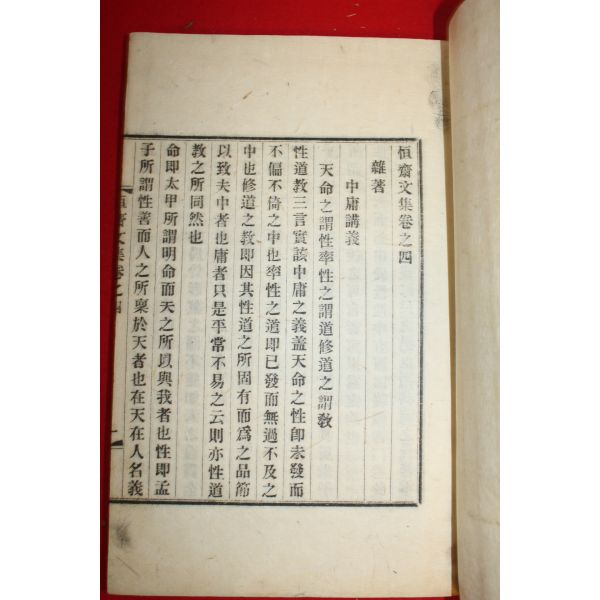 恒齋文集卷之四
雜著
中庸講義
天命之謂性率性之謂道修道之謂敎
性道教三言實該中庸之義盖天命之性卽未發而
不偏不倚之中也率性之道即已發而無過不及之
中也修道之教即因其性道之所固有而爲之品節
以致夫中者也庸者只是平常不易之云則亦性道
教之所同然也
命即太甲所謂明命而天之所以與我者也性即孟
子所謂性善而人之所稟於天者也在天在人名義
恒齋文集卷之四
一